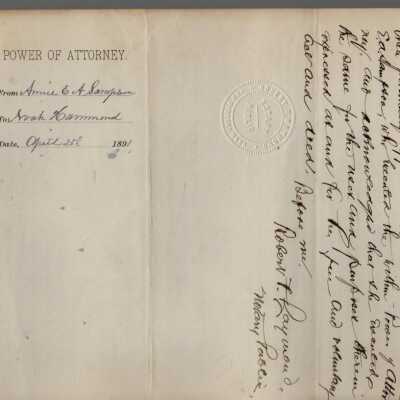 POWER OF ATTORNEY.
From Annie E A Sampson
To Noah Hammond
Date, April 25th 1891
E. A. Sampson, who executed the within Power of Attor
ney and acknowledged that she executed
the same for the uses and purposes therein
expressed as and for her free and voluntary
act and deed. Before me,
Robert F. Raymond,
Notary Public.